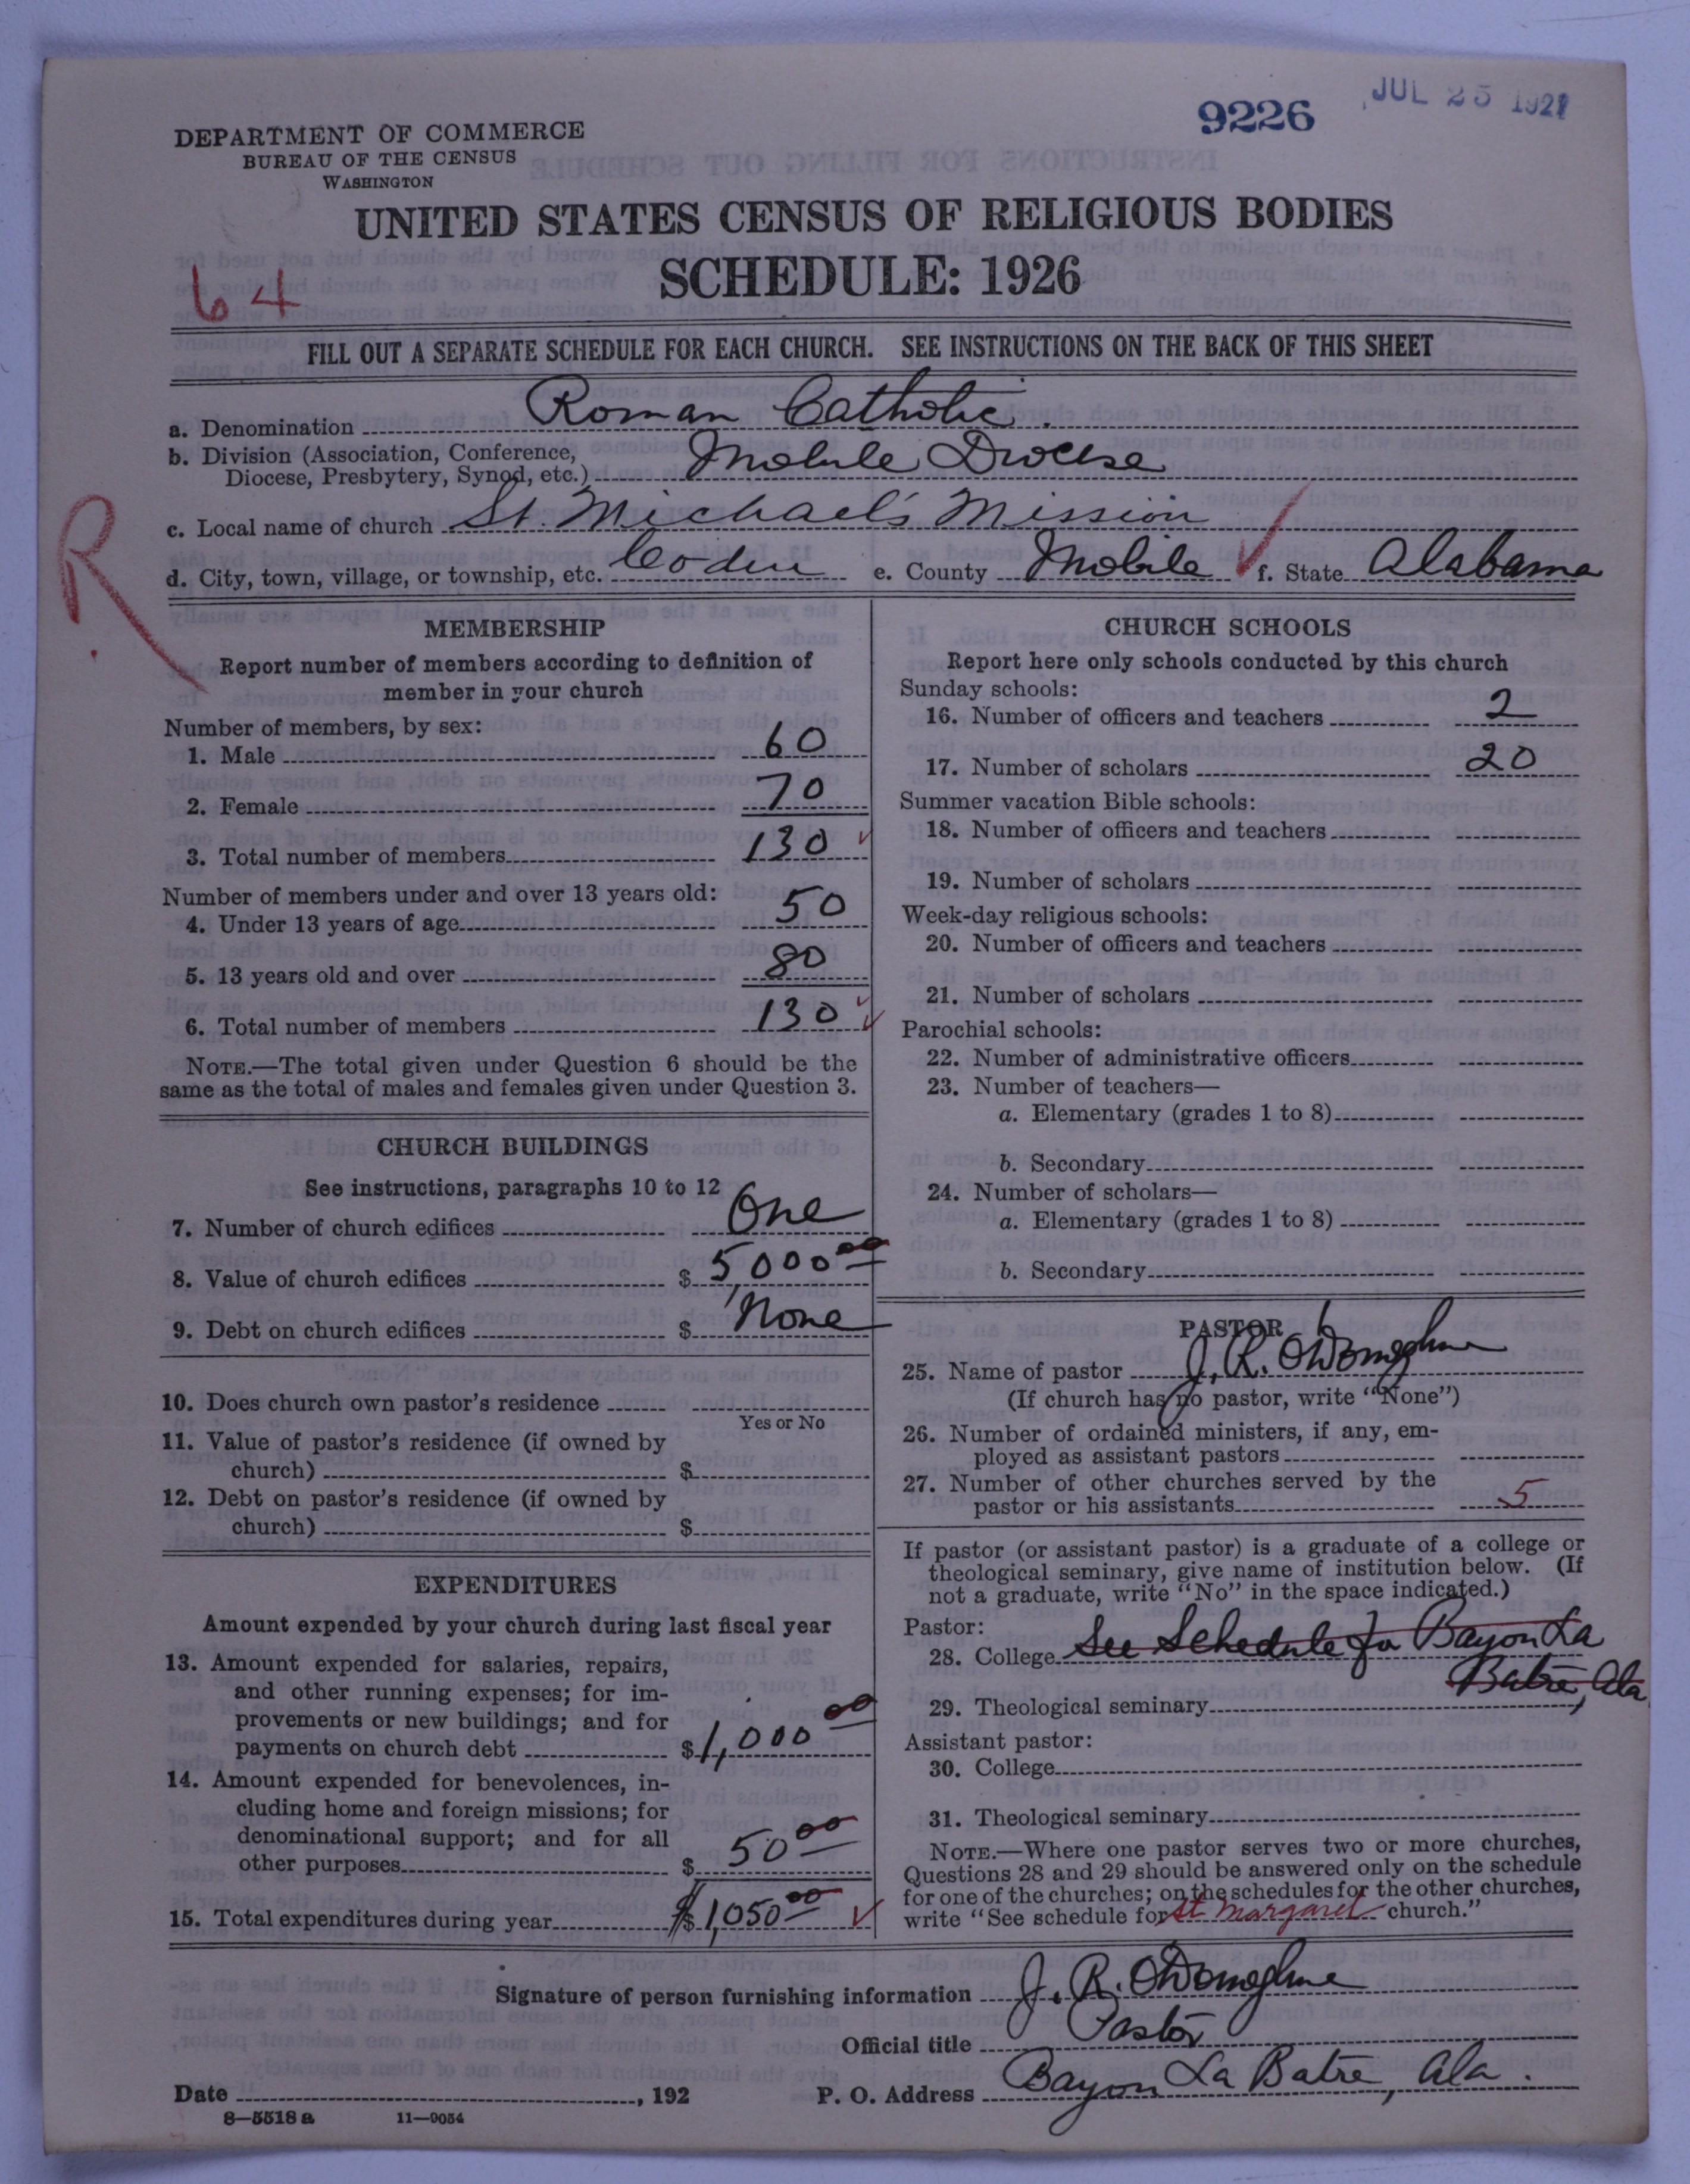 9226
JUL 25 1927
DEPARTMENT OF COMMERCE
BUREAU OF THE CENSUS
WASHINGTON
UNITED STATES CENSUS OF RELIGIOUS BODIES
SCHEDULE: 1926
64
FILL OUT A SEPARATE SCHEDULE FOR EACH CHURCH. SEE INSTRUCTIONS ON THE BACK OF THIS SHEET
a. Denomination Roman Catholic.
b. Division (Association, Conference,
Diocese, Presbytery, Synod, etc.) Mobile Diocese
c. Local name of church St. Michael's Mission
d. City, town, village, or township, etc. Coden e. County Mobile f. State Alabama
R
MEMBERSHIP
Report number of members according to definition of
member in your church
Number of members, by sex:
1. Male 60
2. Female 70
3. Total number of members 130
Number of members under and over 13 years old:
4. Under 13 years of age 50
5. 13 years old and over 80
6. Total number of members 130
NOTE.—The total given under Question 6 should be the
same as the total of males and females given under Question 3.
CHURCH BUILDINGS
See instructions, paragraphs 10 to 12
7. Number of church edifices One
8. Value of church edifices $ 5,000 00
9. Debt on church edifices $ None
10. Does church own pastor's residence
Yes or No
11. Value of pastor's residence (if owned by
church) $
12. Debt on pastor's residence (if owned by
church) $
EXPENDITURES
Amount expended by your church during last fiscal year
13. Amount expended for salaries, repairs,
and other running expenses; for im-
provements or new buildings; and for
payments on church debt $ 1,000 00
14. Amount expended for benevolences, in-
cluding home and foreign missions; for
denominational support; and for all
other purposes $ 50 00
15. Total expenditures during year $ 1,050 00
CHURCH SCHOOLS
Report here only schools conducted by this church
Sunday schools:
16. Number of officers and teachers 2
17. Number of scholars 20
Summer vacation Bible schools:
18. Number of officers and teachers
19. Number of scholars
Week-day religious schools:
20. Number of officers and teachers
21. Number of scholars
Parochial schools:
22. Number of administrative officers
23. Number of teachers—
a. Elementary (grades 1 to 8)
b. Secondary
24. Number of scholars—
a. Elementary (grades 1 to 8)
b. Secondary
PASTOR
25. Name of pastor J. R. O'Donoghue
(If church has no pastor, write "None")
26. Number of ordained ministers, if any, em-
ployed as assistant pastors
27. Number of other churches served by the
pastor or his assistants 5
If pastor (or assistant pastor) is a graduate of a college or
theological seminary, give name of institution below. (If
not a graduate, write "No" in the space indicated.)
Pastor:
28. College See Schedule for Bayou La
Batre, Ala
29. Theological seminary
Assistant pastor:
30. College
31. Theological seminary
NOTE.—Where one pastor serves two or more churches,
Questions 28 and 29 should be answered only on the schedule
for one of the churches; on the schedules for the other churches,
write "See schedule for St Margaret church."
Signature of person furnishing information J. R. O'Donoghue
Official title Pastor
Date , 192 P. O. Address Bayou La Batre, Ala.
8—5518 a 11—9054